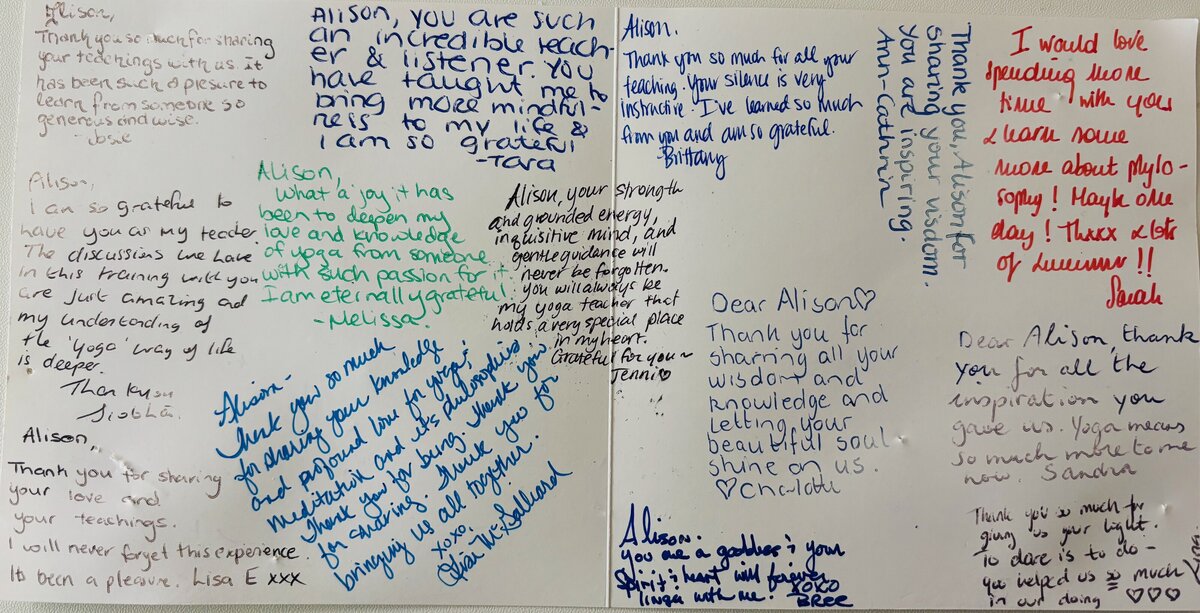 Alison,
Thank you so much for sharing
your teachings with us It
has been such a plesure to
learn from someone so
generous and wise.
- Josie
Alison, you are such
an incredible teach-
er & listener. You
have taught me to
bring more mindful-
ness to my life &
I am so grateful
- Tara
Alison,
I am so grateful to
have you as my teacher.
The discussions we have
in this training with you
are just amazing and
my understanding of
the 'Yoga' way of life
is deeper.
Thank you
Siobhán.
Alison,
What a joy it has
been to deepen my
love and knowledge
of yoga from someone
with such passion for it.
I am eternally grateful.
- Melissa.
Alison, your strength
and grounded energy,
inquisitive mind, and
gentle guidance will
never be forgotten.
you will always be
my yoga teacher that
holds a very special place
in my heart.
Grateful for you ~
Jenni♡
Alison,
Thank you for sharing
your love and
your teachings.
I will never forget this experience.
Its been a pleasure. Lisa E xxx
Alison -
Thank you so much
for sharing your knowledge
and profound love for yoga,
meditation and its philosophies
Thank you for being. Thank you
for sharing. Thank you for
bringing us all together.
xoxo,
McGalliard
Alison.
Thank you so much for all your
teaching. Your silence is very
instructive. I've learned so much
from you and am so grateful.
- Brittany
Thank you, Alison for
sharing your wisdom.
You are inspiring.
Ann-Cathrin
I would love
spending more
time with you
& learn some
more about phylo-
sophy! Maybe one
day! Thxxx & lots
of !!
Sarah
Dear Alison♡
Thank you for
sharring all your
wisdom and
knowledge and
letting your
beautiful soul
shine on us.
♡ Charlotte
Dear Alison, thank
you for all the
inspiration you
gave us. Yoga means
so much more to me
now. Sandra
Alison.
you are a goddess & your
Spirit & heart will forever
linga with me! XOXO
BREE
Thank you so much for
giving us your light.
To dare is to do -
you helped us so much
in our doing ♡♡♡